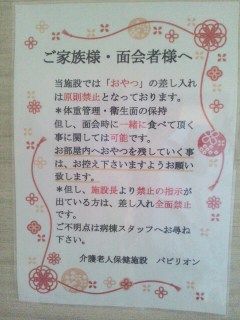 ご家族様・面会者様へ
当施設では「おやつ」の差し入れ
は原則禁止となっております。
＊体重管理・衛生面の保持
但し、面会時に一緒に食べて頂く
事に関しては可能です。
お部屋内へおやつを残していく事
は、お控え下さいますようお願い
致します。
＊但し、施設長より禁止の指示が
出ている方は、差し入れ全面禁止
です。
ご不明点は病棟スタッフへお尋ね
下さい。
介護老人保健施設　パビリオン